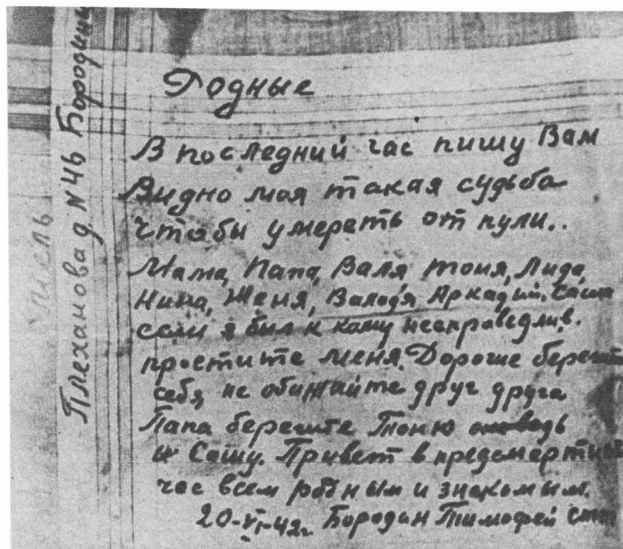 Плеханова д N 46 Бородины
Родные
В последний час пишу Вам
Видно моя такая судьба
чтобы умереть от пули..
Мама, Папа, Валя Тоня, Лида,
Нина, Женя, Валодя Аркадий, Саша
если я был к кому несправедлив.
простите меня. Дорогие берегите
себя, не обижайте друг друга
Папа берегите Тоню ведь
и Сашу. Привет в предсмертный
час всем родным и знакомым.
20-VI-42г. Бородин Тимофей